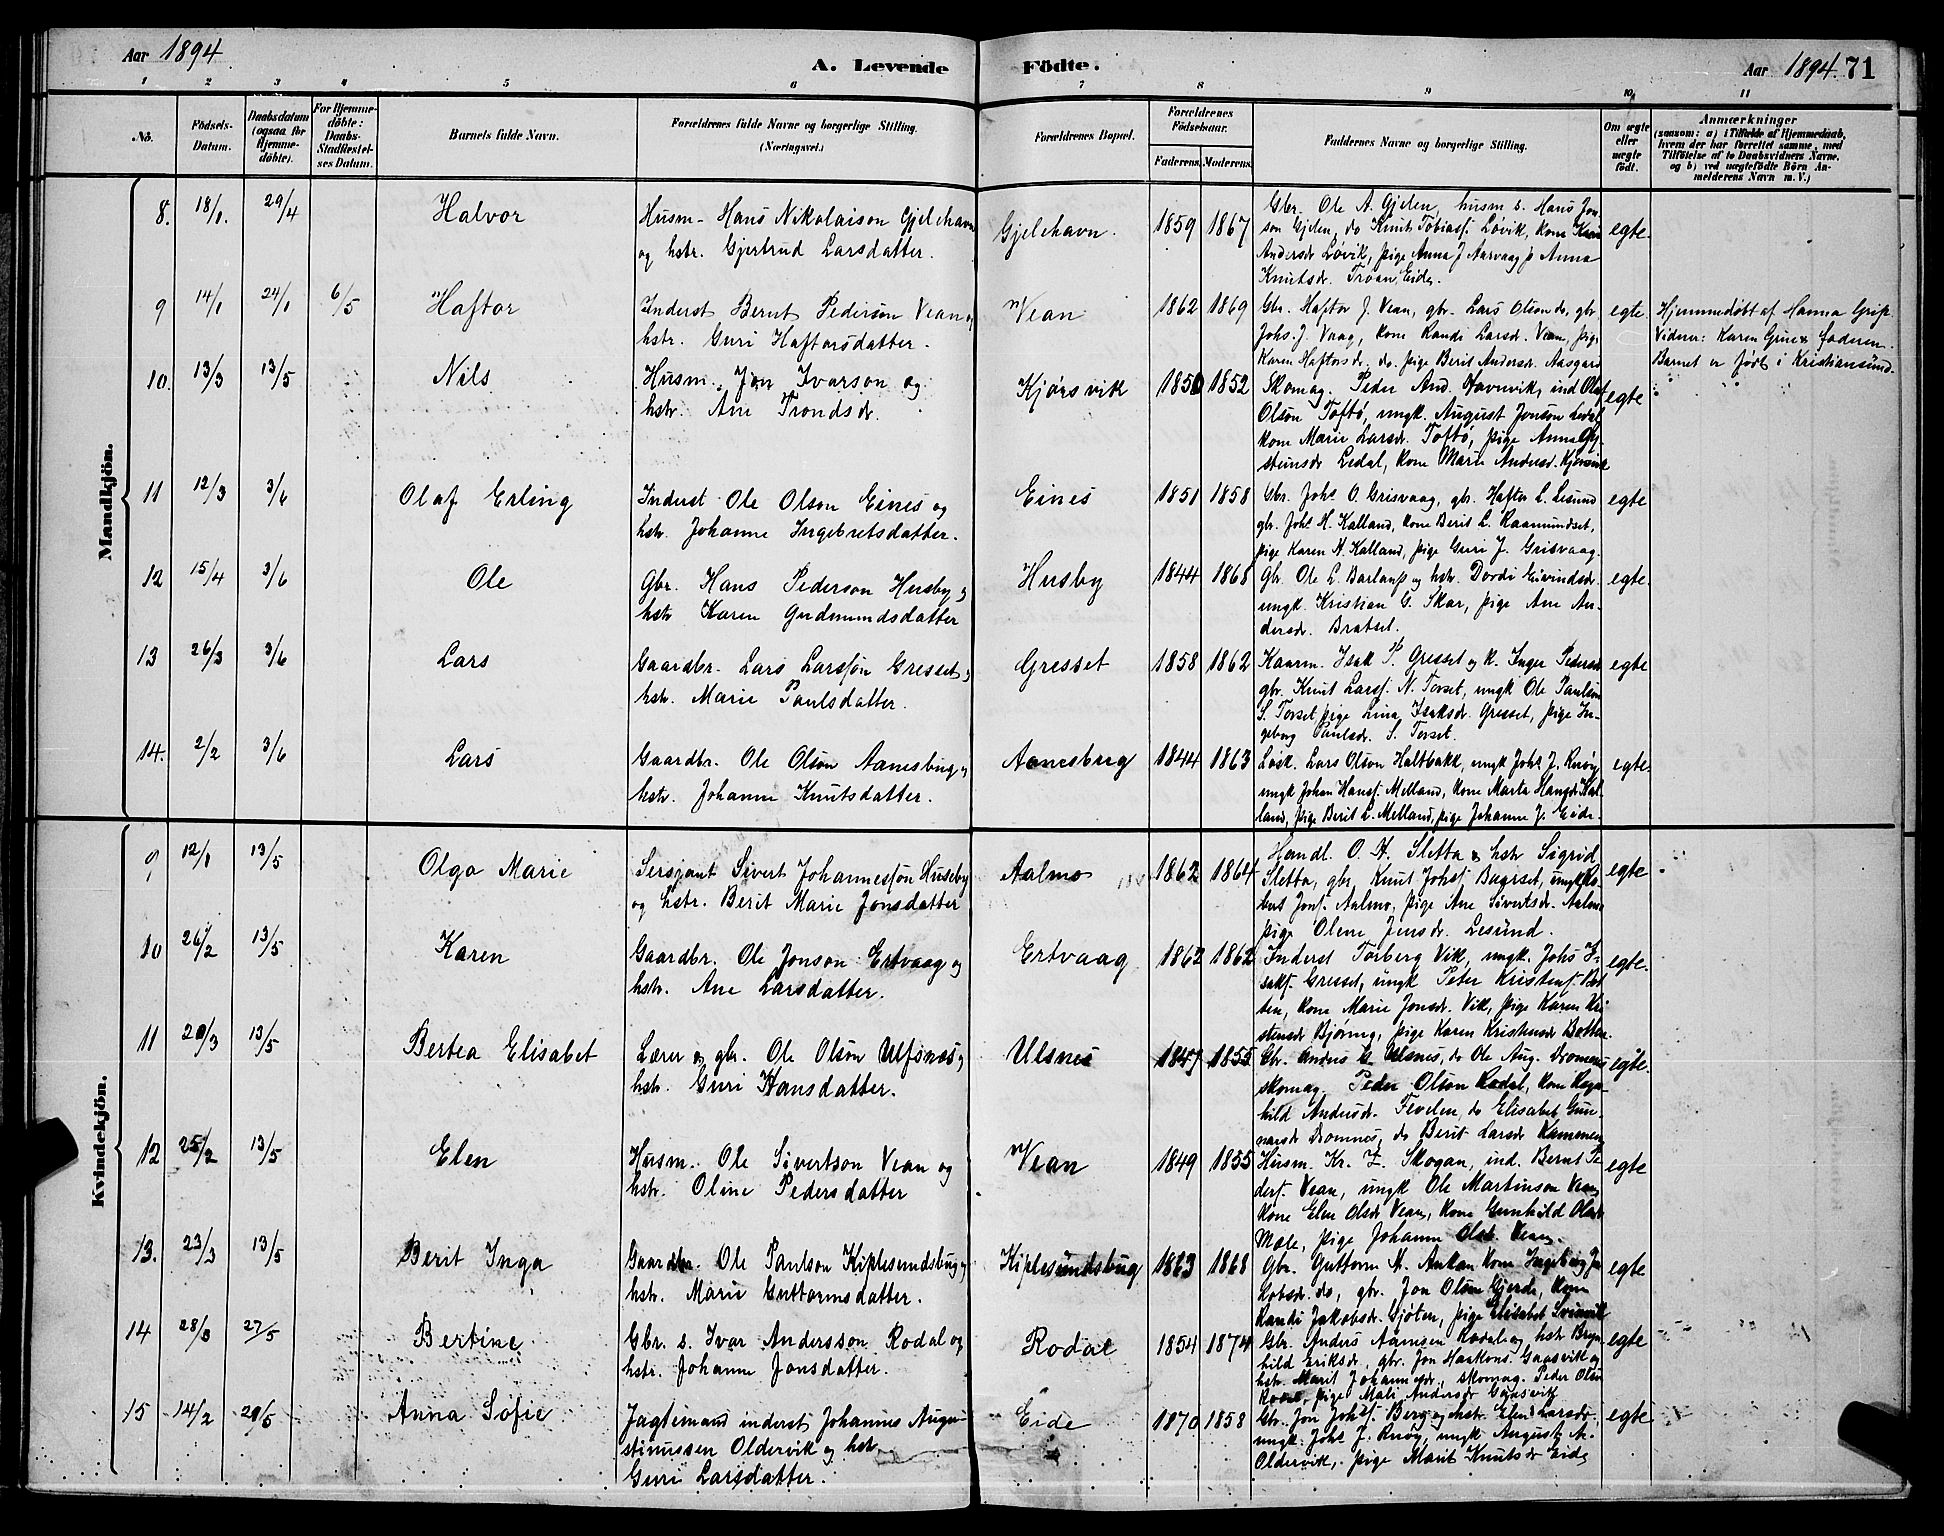 Aar 1894
A. Levende
Fødte.
Aar 1894. 71
1 2 3 4 5 6 7 8 9 10 11
No.
Fødsels-
Datum.
Daabsdatum
(ogsaa for
Hjemme-
døbte).
For Hjemme-
døbte:
Daabs-
Stadfæstel-
ses Datum.
Barnets fulde Navn.
Forældrenes fulde Navne og borgerlige Stilling.
(Næringsvei.)
Forældrenes Bopæl.
Forældrenes
Fødselsaar.
Faderens. Moderens.
Faddernes Navne og borgerlige Stilling.
Om ægte
eller
uægte
født.
Anmærkninger
(saasom: a) i Tilfælde af Hjemmedaab,
hvem der har forrettet samme, med
Tilføielse af to Daabsvidners Navne.
og b) ved uægtefødte Børn An-
melderens Navn m. V.)
Mandkjön.
8. 18/1. 29/4 Halvor
Husm. Hans Nikolaison Gjelehavn
og hstr. Gjertrud Larsdatter.
Gjelehavn. 1859 1867
Gbr. Ole A. Gjelen, husm s. Hans Jon-
son Gjelen, do Knut Tobiasf. Løvik, Kone
Andersdr Løvik, pige Anna J Aarvaag p Anna
Knutsdr. Troan Eide.
egte.
9 14/1 24/1 6/5 Haftor
Inderst Bernt Pederson Vean og
hstr. Guri Haftorsdatter.
Vean 1862 1869
Gbr. Haftor J. Vean, gbr. Lars Olson do, gbr
Johs. J. Vaag, kone Randi Larsdr. Vean, pige
Karen Haftorsdr, do, pige Berit Andersdr Aasgard
egte.
Hjemmedøbt af Hanna Grip
Vidner: Karen Grue & faderen.
Barnet er født i Kristiansund.
10. 13/3 13/5 Nils
Husm. Jon Ivarson og
hstr. Ane Trondsdr.
Kjørsvik 1850 1852
Skomag. Peder And. Havnvik, ind Olaf
Olson Toftø, ungk. August Jonson Ledal,
kone Marie Larsdr. Toftø, pige Anna Øy-
steinsdr Ledal, kone Marie Andersd. Kjørsvik
egte
11 12/3 3/6 Olaf Erling
Inderst Ole Olson Eines og
hstr. Johanne Ingebretsdatter.
Eines 1851 1858
Gbr. Johs O. Grisvaag, gbr. Haftor L. Lesund
gbr. Johs H. Kalland, kone Berit L. Raamundset,
pige Karen H. Kalland, pige Guri J. Grisvaag.
egte
12 15/4 3/6 Ole
Gbr. Hans Pederson Husby og
hstr Karen Gudmundsdatter
Husby 1844 1868
Gbr. Ole L. Barlaup og hstr. Dordi Eivindsdr.
ungk. Kristian G. Skar, pige Ane An-
dersdr. Bratset.
egte.
13 26/3 3/6 Lars
Gaardbr. Lars Larsson Gresset og
hstr. Marie Paulsdatter.
Gresset 1858 1862
Kaarm. Isak P. Gresset og K. Inger Pedersdr
gbr. Knut Larsf. N. Torset, ungk Ole Paulson
S. Torset, pige Lina Isaksdr. Gresset, pige In-
geborg Paulsdr. S. Torset.
egte
14. 2/2 3/6 Lars
Gaardbr. Ole Olson Aanesbug og
hstr. Johanne Knutsdatter.
Aanesbug 1844 1863
Løsk. Lars Olson Haltbakk, ungk Johs J. Rusøy
ungk Johan Hansf. Melland, kone Marta Hansdr Kal-
land, pige Berit L. Melland, pige Johanne J. Eide.
egte.
Kvindekjön.
9 12/1 13/5 Olga Marie
Sersjant Sivert Johannesson Huseby
og hstr. Berit Marie Jonsdatter
Aalmo 1862 1864
Handl. O. H. Sletta & hstr Sigrid
Sletta, gbr. Knut Johsf Bugrset, ungk Ro-
bert Jonf. Aalmo, pige Ane Sivertsdr. Aalmo
pige Oline Jensdr. Lesund.
egte
10 26/2 13/5 Karen
Gaardbr. Ole Jonson Ertvaag og
hstr. Ane Larsdatter.
Ertvaag 1862 1862
Inderst Torberg Vik, ungk. Johs I-
sakf. Gresset, ungk Peter Kristenf. Bot-
ten, kone Marie Jonsdr. Vik, pige Karen Kri-
stensdr Bjøring, pige Karen Kristensdr Botten
egte.
11 20/3 13/5 Bertea Elisabet
Lærer og gbr. Ole Olson Ulfsnes og
hstr. Guri Hansdatter.
Ulsnes 1847 1855
Gbr. Anders G. Ulsnes, do Ole Aug. Dromnes
skomag. Peder Olson Rodal, kone Ragn-
hild Andersdr. Fevelen, do Elisabet Gun-
narsdr Dromnes, do Berit Larsdr Kamenen
egte.
12 25/2 13/5 Elen
Husm. Ole Sivertson Vean og
hstr. Oline Pedersdatter
Vean 1849 1855
Husm. Kr. L. Skogan, ind. Bernt Pe-
dersf. Vean, ungk Ole Martinson Vean
kone Elen Olsdr Vean, kone Gunhild Olsdr
Mole, pige Johanne Olsdr Vean.
egte
13. 23/3 13/5 Berit Inga
Gaardbr. Ole Paulson Kiplesundsbug og
hstr. Marie Guttormsdatter.
Kiplesundsbug 1863 1868
Gbr. Guttorm A. Aukan kone Ingeborg Ja-
kobsdr. do, gbr. Jon Olson Gjerde, kone
Randi Jakobsdr. Sjøten, pige Elisabet Svinvik
egte
14 28/3 27/5 Bertine
Gbr. s. Ivar Andersson Rodal og
hstr. Johanne Jonsdatter.
Rodal 1854 1874
Gbr. Anders Aamsen Rodal og hstr Bryn-
hild Eriksdr, gbr. Jon Haakons. Gaasvik og
hstr. Marit Johannesdr, skomag. Peder Olsn
Rodal, pige Mali Andersdr Gaasvik
egte
15 14/2 20/5 Anna Sofie
Jagtemand inderst Johannes Augu-
stinussen Oldervik og hstr.
Guri Larsdatter.
Eide 1870 1858
Gbr. Jon Johsf. Berg og hstr. Elen Larsdr,
ungk. Johs J. Rusøy, ungk August A.
Oldervik, pige Marit Knutsdr Eide
egte